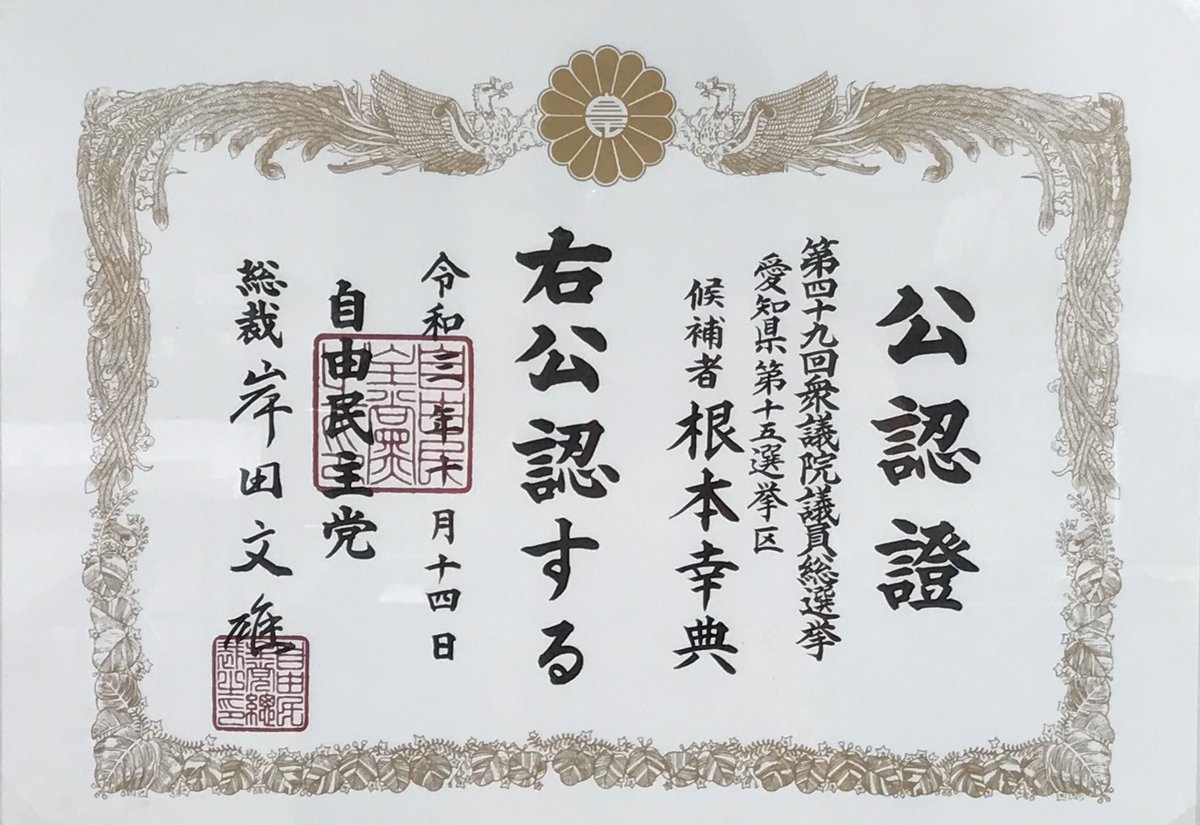 公認證
第四十九回衆議院議員総選挙
愛知県第十五選挙区
候補者 根本幸典
右公認する
令和三年十月十四日
自由民主党
総裁 岸田文雄